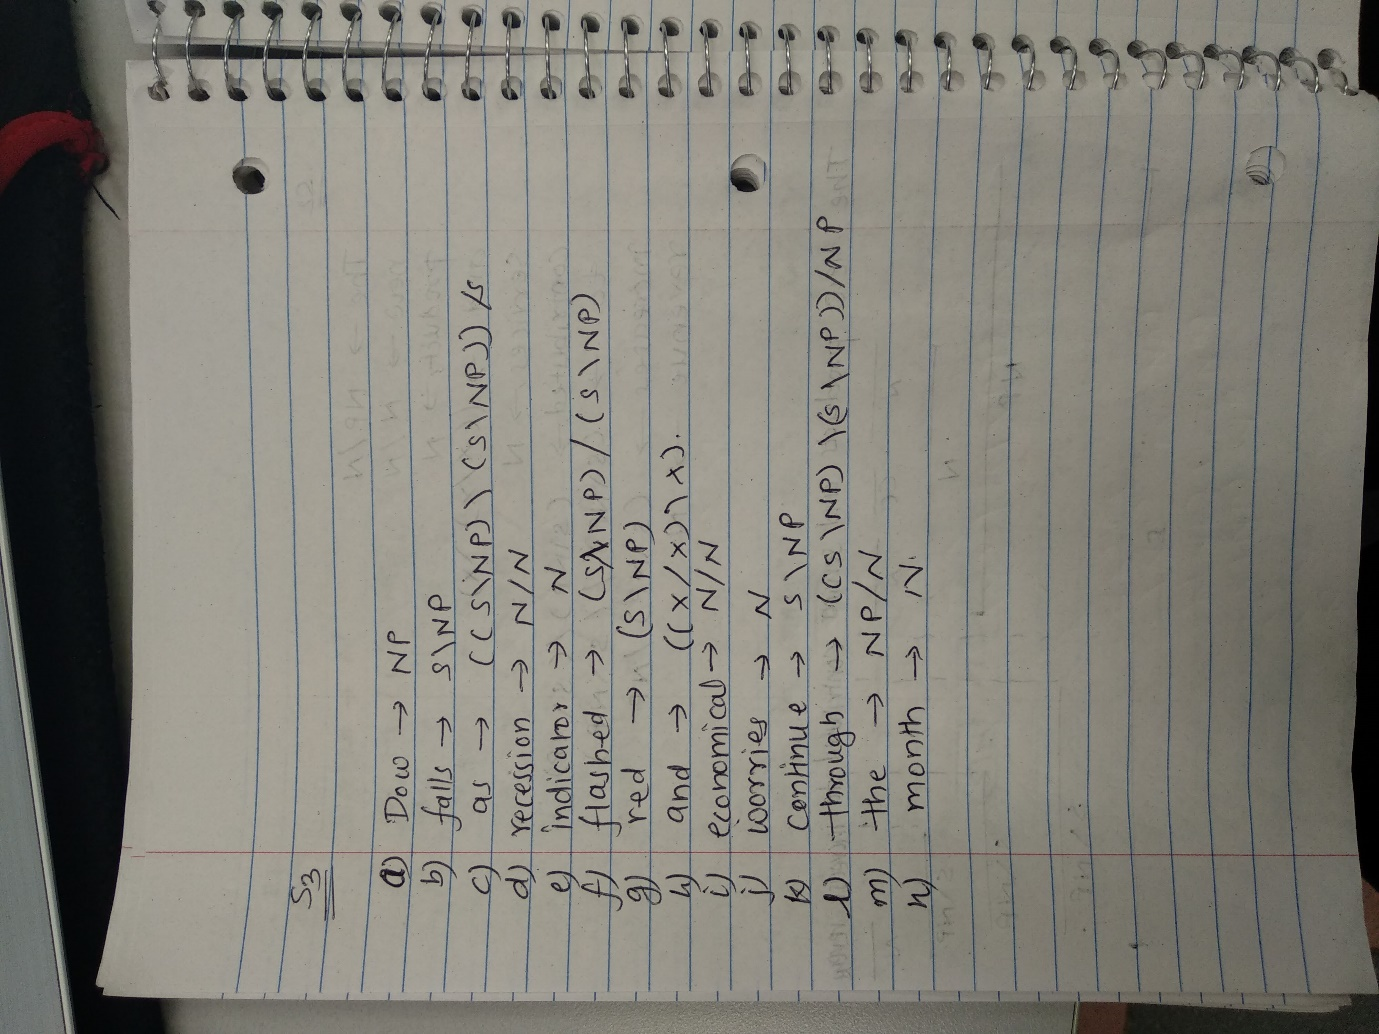 S3
a) Dow → NP
b) falls → S\NP
c) as → ((S\NP)\(S\NP))/S
d) recession → N/N
e) indicator → N
f) flashed → (S\NP)/(S\NP)
g) red → (S\NP)
h) and → ((x/x)\x).
i) economical → N/N
j) worries → N
k) continue → S\NP
l) through → ((S\NP)\(S\NP))/NP
m) the → NP/N
n) month → N.